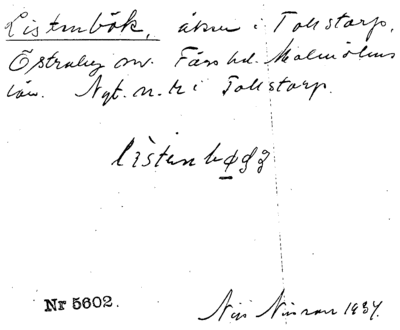 Listenbök, åker i Tolstorp,
Östraby sn. Färs hd. Malmöhus
län. Nyt. n. tr i Tolstorp.
listenbøgg
Nr 5602.
Nils Nilsson 1934.